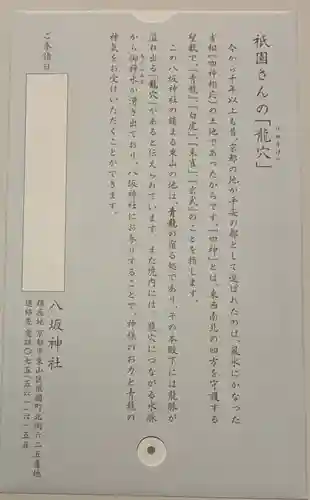 祇園さんの「龍穴」
今から千年以上も昔、京都の地が平安の都として選ばれたのは、風水にかなった
吉相(四神相応)の土地であったからです。「四神」とは、東西南北の四方を守護する
聖獣で、「青龍」、「白虎」、「朱雀」、「玄武」のことを指します。
この八坂神社の鎮まる東山の地は、青龍の宿る処であり、その本殿下には龍脈が
溢れ出る「龍穴」があると伝えられています。また境内には、龍穴につながる水脈
から御神水が湧き出ており、八坂神社にお参りすることで、神様のお力と青龍の
神気をお受けいただくことができます。
ご参拝日
八坂神社
鎮座地 京都市東山区祇園町北側六二五番地
連絡先 電話〇七五